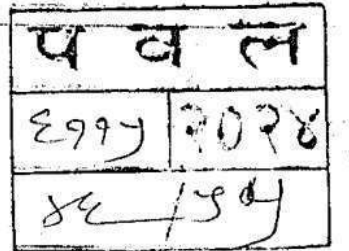 प व ल
६११५ २०२४
४६ /